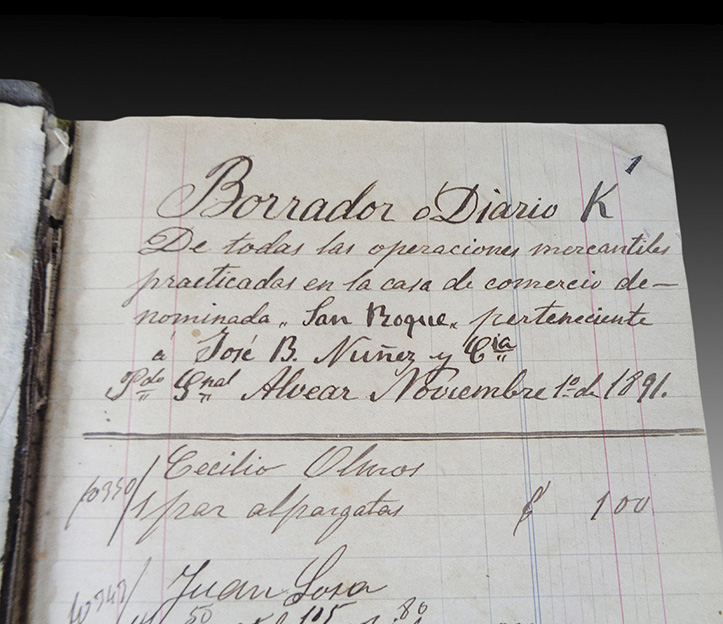 1
Borrador ó Diario K
De todas las operaciones mercantiles
practicadas en la casa de comercio de-
nominada "San Roque" perteneciente
á José B. Nuñez y Cia
Pdo Gnal Alvear Noviembre 1º de 1891.
Cecilio Olmos
1 par alpargatas $ 1 00
Juan Sosa
50 105 80